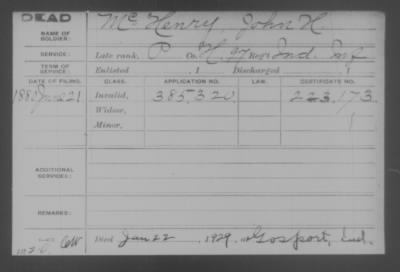 DEAD
Mc Henry, John H.
NAME OF
SOLDIER:
SERVICE:
Late rank, P Co. H, 97 Reg't Ind. Inf
TERM OF
SERVICE
Enlisted , 1 Discharged , 1
DATE OF FILING. CLASS. APPLICATION NO. LAW. CERTIFICATE NO.
1880 June 21 Invalid, 385320 223,173
Widow,
Minor,
ADDITIONAL
SERVICES:
REMARKS:
CW Died Jan 22, 1929, at Gosport, Ind.